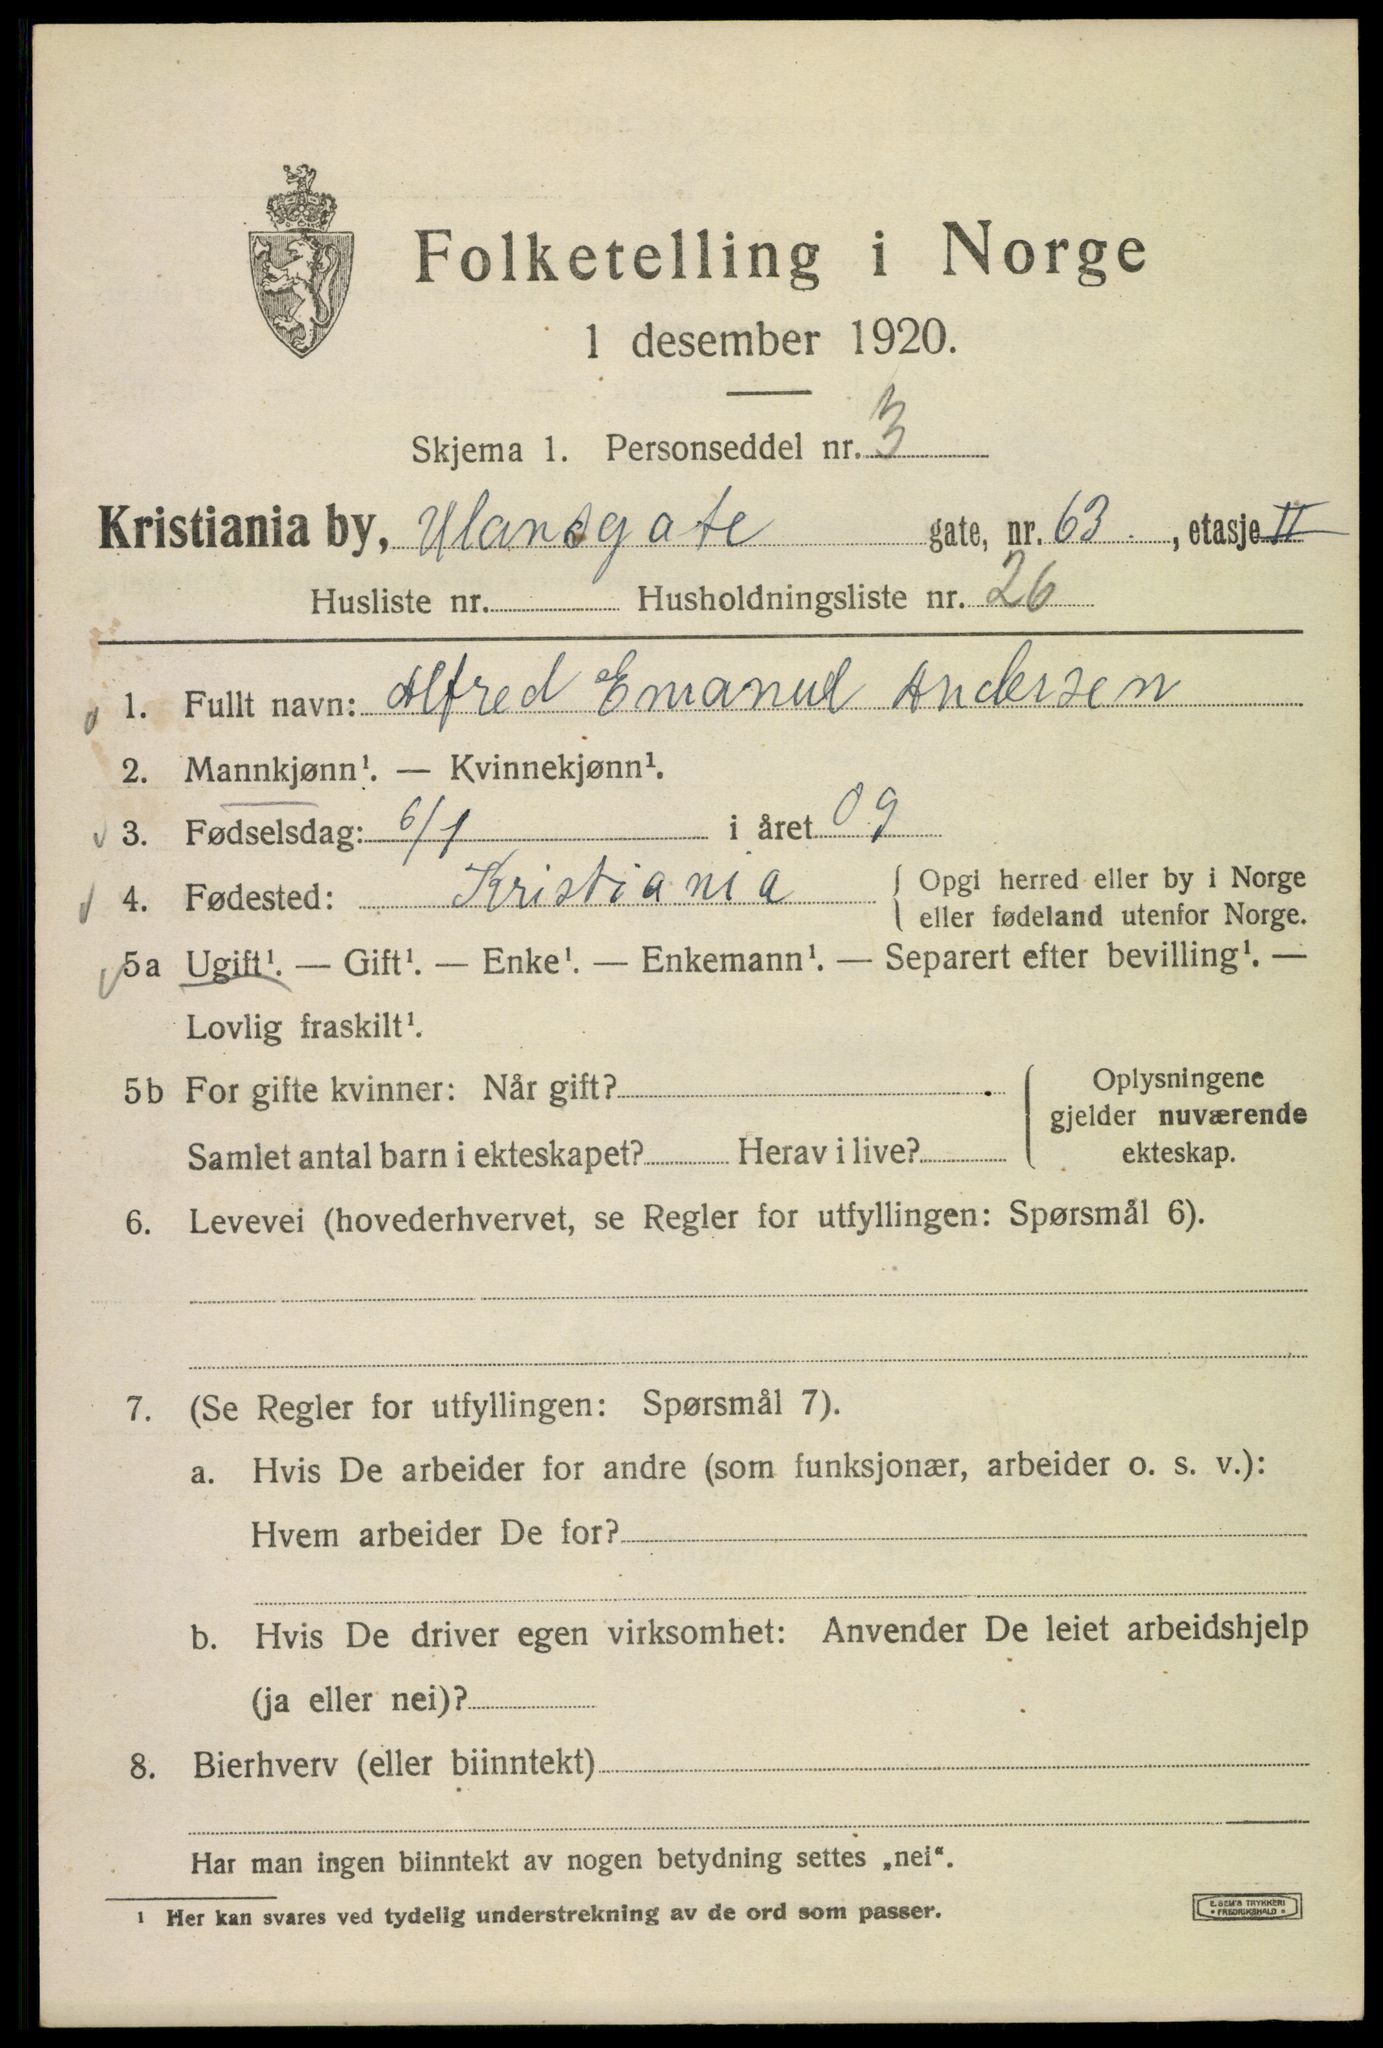 Folketelling i Norge
1 desember 1920.
Skjema 1. Personseddel nr. 3
Kristiania by, Ulansgate gate, nr. 63 , etasje II
Husliste nr. Husholdningsliste nr. 26
1. Fullt navn: Alfred Emanuel Andersen
2. Mannkjønn¹. — Kvinnekjønn¹.
3. Fødselsdag: 6/1 i året 09
4. Fødested: Kristiania { Opgi herred eller by i Norge
eller fødeland utenfor Norge.
5a Ugift¹. — Gift¹. — Enke¹. — Enkemann¹. — Separert efter bevilling¹. —
Lovlig fraskilt¹.
5b For gifte kvinner: Når gift?
Samlet antal barn i ekteskapet? Herav i live?
Oplysningene
gjelder nuværende
ekteskap.
6. Levevei (hovederhvervet, se Regler for utfyllingen: Spørsmål 6).
7. (Se Regler for utfyllingen: Spørsmål 7).
a. Hvis De arbeider for andre (som funksjonær, arbeider o. s. v.):
Hvem arbeider De for?
b. Hvis De driver egen virksomhet: Anvender De leiet arbeidshjelp
(ja eller nei)?
8. Bierhverv (eller biinntekt)
Har man ingen biinntekt av nogen betydning settes „nei“.
¹ Her kan svares ved tydelig understrekning av de ord som passer.
E. SEM'S TRYKKERI
• FREDRIKSHALD •